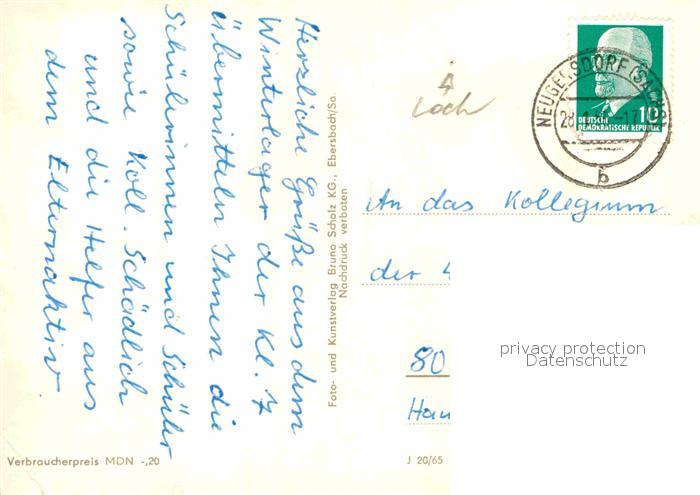 Herzliche Grüße aus dem
Winterlager der Kl. 7
übermitteln Ihnen die
Schülerinnen und Schüler
sowie Koll. Schädlich
und die Helfer aus
dem Elternaktiv.
Foto- und Kunstverlag Bruno Scholz KG., Ebersbach/Sa.
Nachdruck verboten
Loch
NEUGERSDORF (SACHS)
28
-17
b
10
DEUTSCHE
DEMOKRATISCHE REPUBLIK
An das Kollegium
der 4
80
Han
privacy protection
Datenschutz
Verbraucherpreis MDN -,20
J 20/65